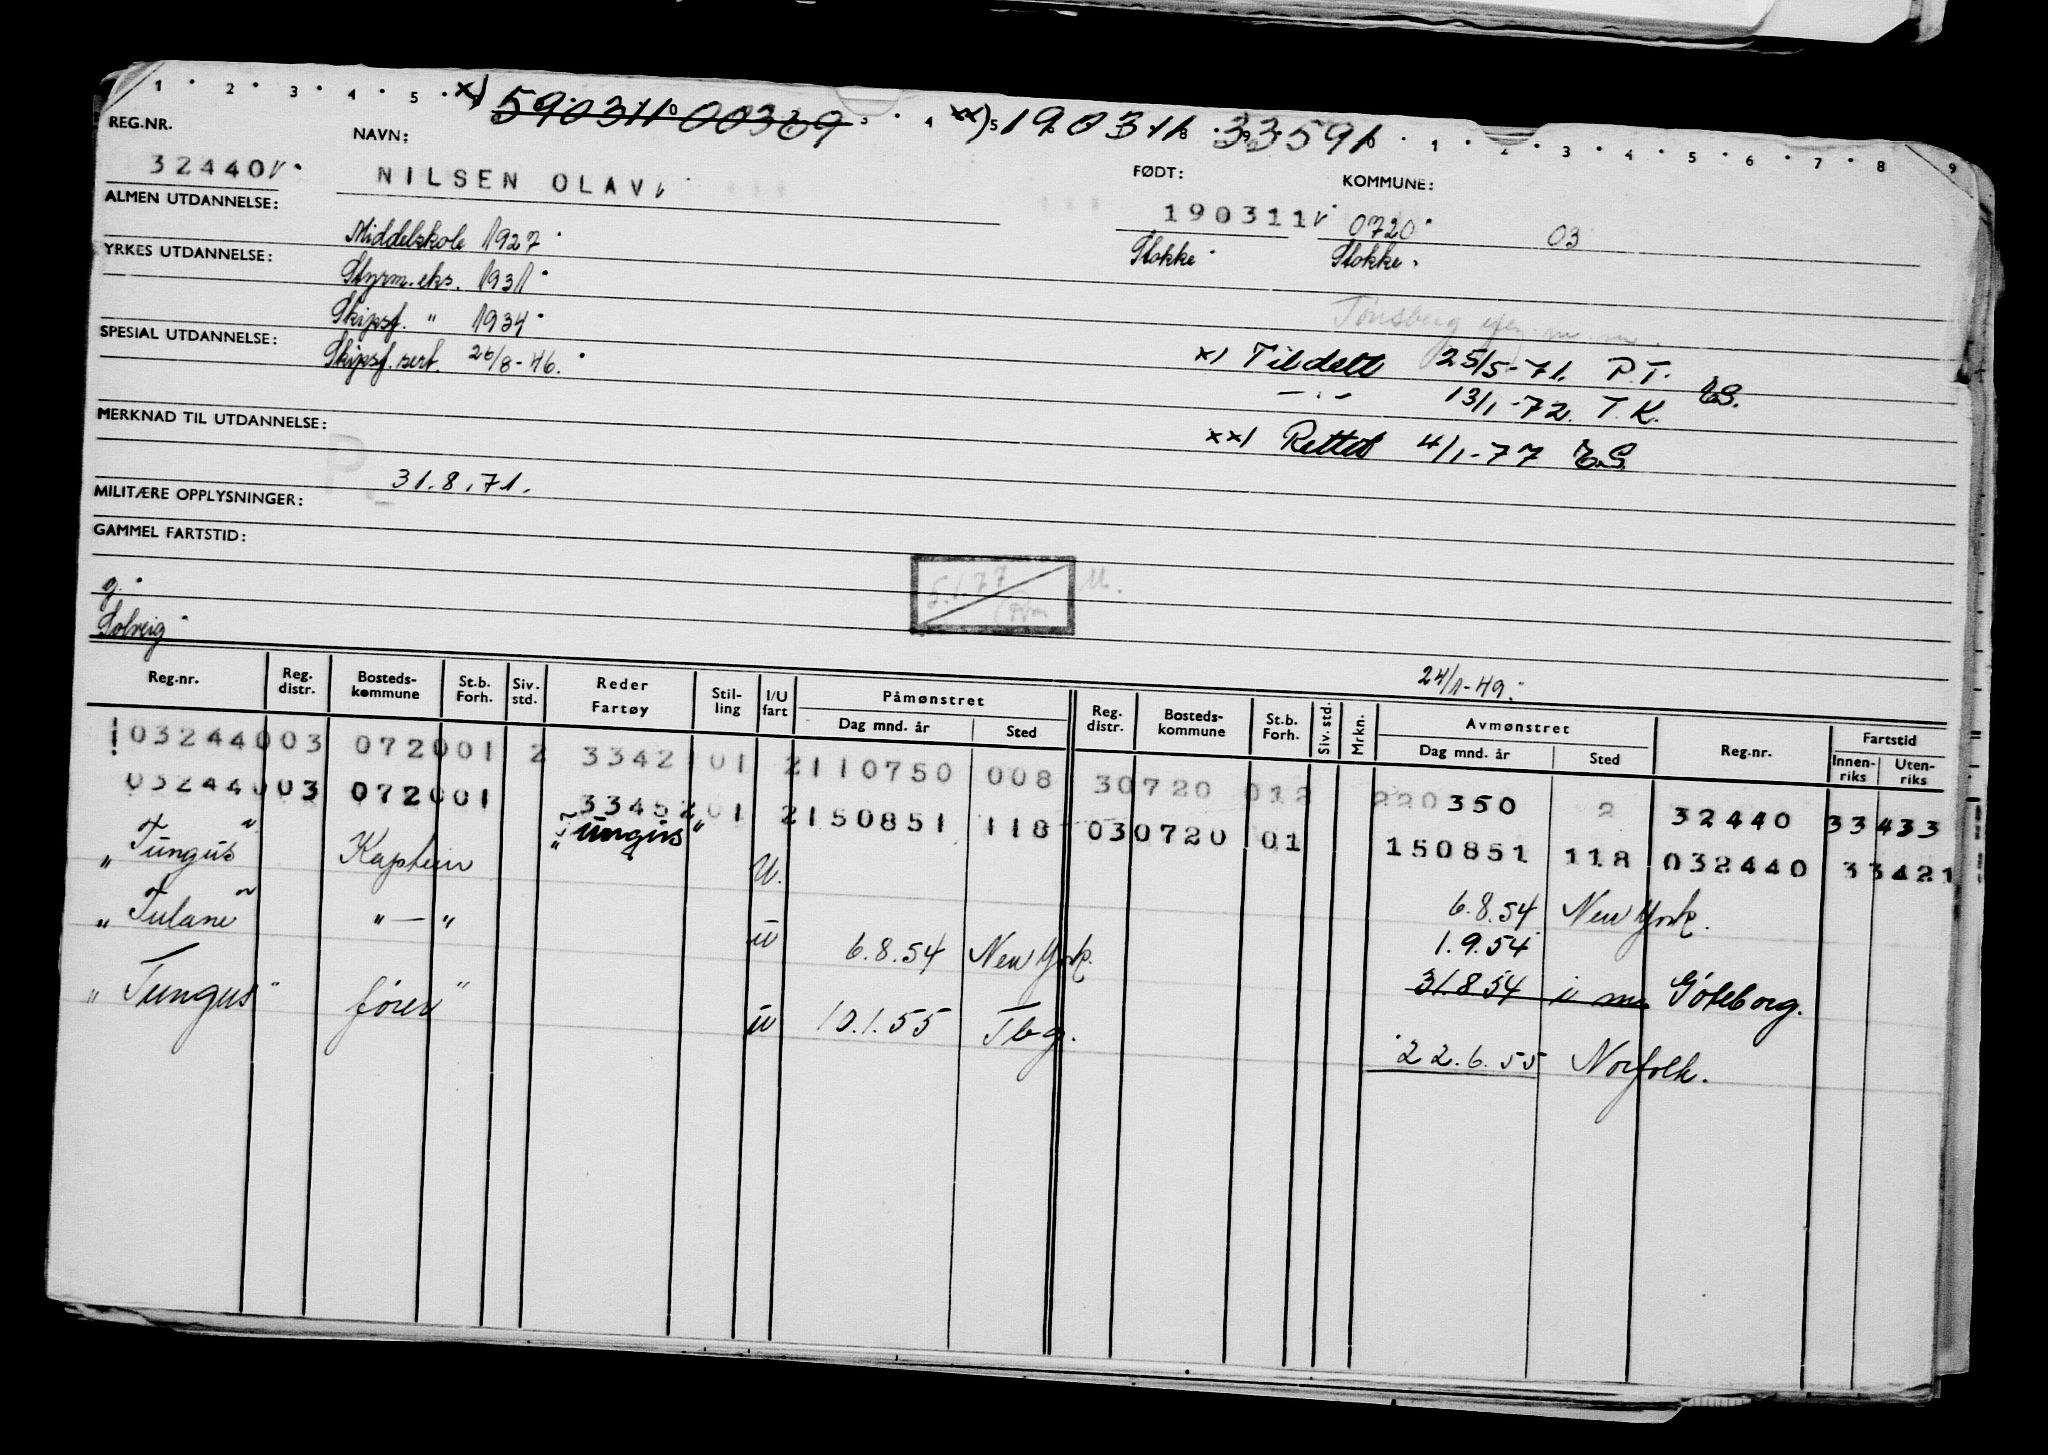 1 2 3 4 5 x) 590311 00369 4 xx) 5 190311 33591 1 2 3 4 5 6 7 8 9
REG.NR. NAVN: FØDT: KOMMUNE:
32440 NILSEN OLAV 190311 0720 03
ALMEN UTDANNELSE: Middelskole 1927 Stokke Stokke
YRKES UTDANNELSE: Styrm.eks. 1931
Skipsf. " 1934 Tønsberg
SPESIAL UTDANNELSE: Skipsf. sert. 26/8-46. x) Tildelt 25/5-71. P.T.
— " — 13/1-72. T.K. E.S.
MERKNAD TIL UTDANNELSE: xx) Rettet 4/1-77 E.S.
P 31.8.71.
MILITÆRE OPPLYSNINGER:
GAMMEL FARTSTID:
5.1.77 M.
g.
Solveig
24/1-49.
Reg.nr. Reg. distr. Bosteds-kommune St.b. Forh. Siv. std. Reder Fartøy Stil-ling I/U fart Påmønstret Dag mnd. år Sted Reg. distr. Bosteds-kommune St.b. Forh. Siv. std. Mrkn. Avmønstret Dag mnd. år Sted Reg.nr. Fartstid Innen-riks Uten-riks
! 032440 03 0720 01 2 33421 01 2 110750 008 30720 012 220350 2 32440 33433
032440 03 0720 01 33452 01 2 150851 118 03 0720 01 150851 118 032440 33421
"Tungus" Kaptein "Tungus" U. 6.8.54 New York.
"Tulane" "—" u 6.8.54 New York. 1.9.54
31.8.54 Göteborg.
"Tungus" fører u 10.1.55 Tbg. 22.6.55 Norfolk.